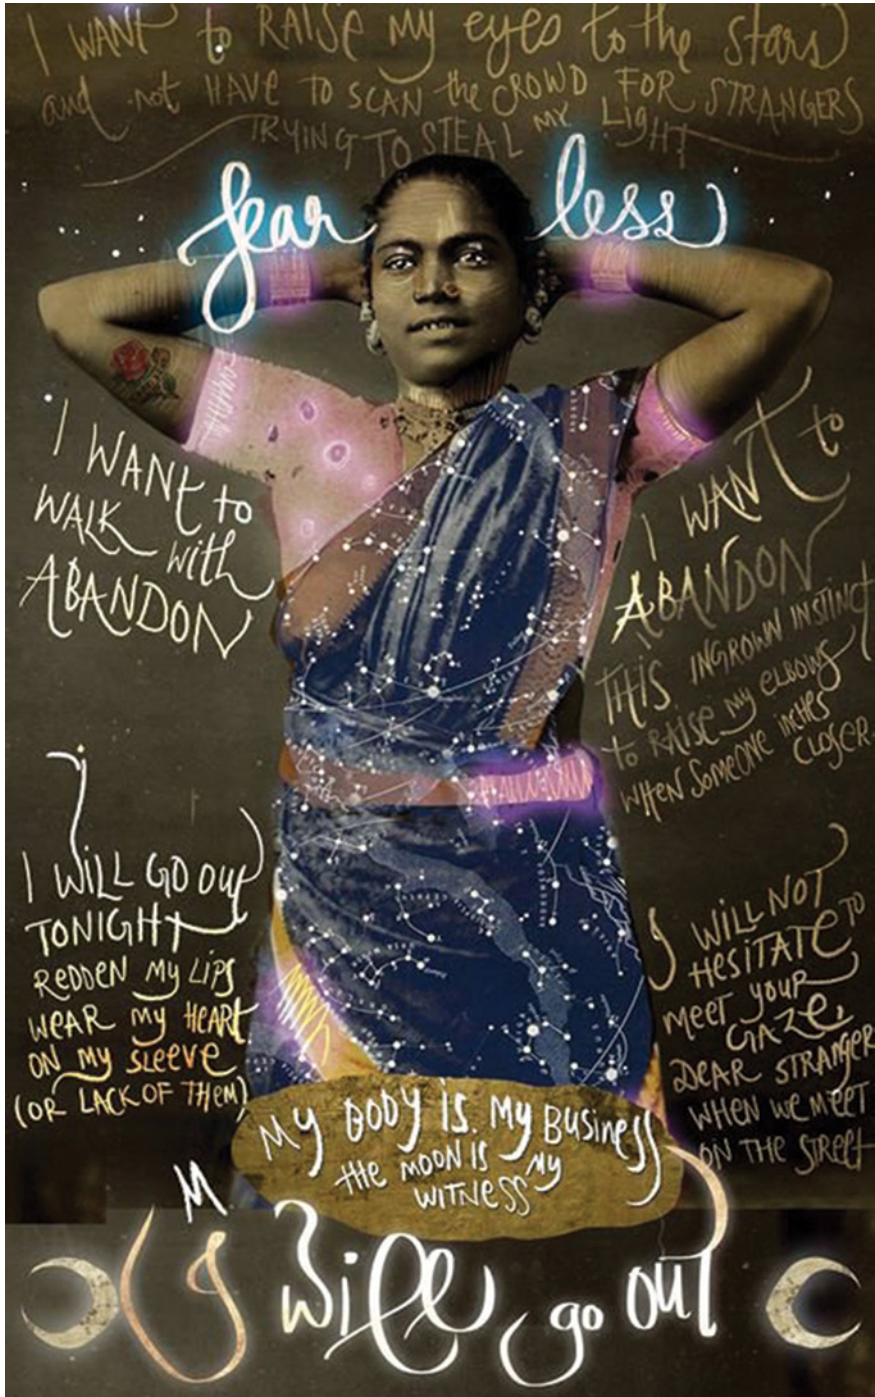 I WANT to RAISE MY eyes to the stars
and not HAVE TO SCAN the CROWD FOR STRANGERS
TRYING TO STEAL MY LIGHT
fearless
I WANt to
WALK with
ABANDON
I WANT to
ABANDON
THIS INGROWN INSTINCT
to RAISE MY ELBOWS
WHEN SOMEONE INCHES
CLOSER
I WILL GO OUT
TONIGHT
REDDEN MY LIPS
WEAR MY HEART
ON MY SLEEVE
(OR LACK OF THEM)
I WILL NOT
HESITATE TO
MEET YOUR
GAZE,
DEAR STRANGER
WHEN WE MEET
ON THE STREET
MY BODY IS MY BUSINESS
the MOON IS MY
WITNESS
I will go out